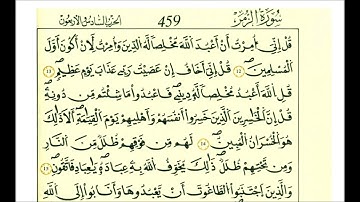 سورة الزمر 459 الحزب السادس والأربعون
قل اني أمرت أن اعبد الله مخلصا له الدين وأمرت لأن اكون أول
المسلمين قل اني أخاف إن عصيت ربي عذاب يوم عظيم
قل الله أعبد مخلصا له ديني فاعبدوا ما شئتم من دونه
قل ان الخسرين الذين خسروا أنفسهم وأهليهم يوم القيمة ألا ذلك
هو الخسران المبين لهم من فوقهم ظلل من النار
ومن تحتهم ظلل ذلك يخوف الله به عباده يعباد فاتقون
والذين اجتنبوا الطغوت أن يعبدوها وأنابوا إلى الله